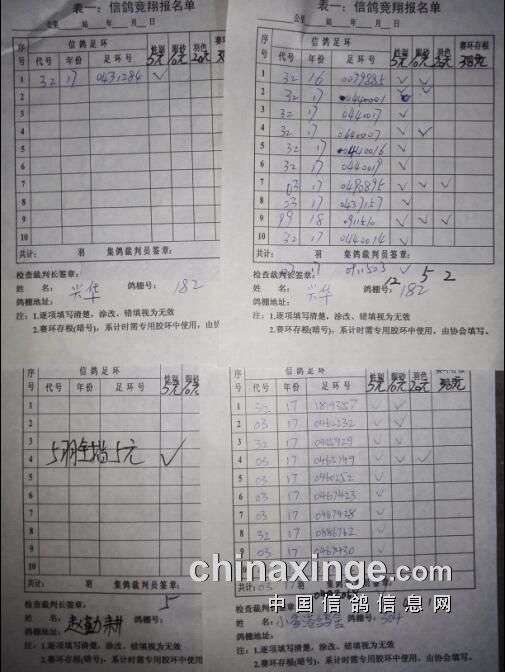 表一：信鸽竞翔报名单
公里 站 年 月 日
序号 信鸽足环 性别 眼砂 羽色 赛环存根
代号 年份 足环号 5元 10元 20元
1 32 17 0431284 ✓
2
3
4
5
6
7
8
9
10
共计： 羽 集鸽裁判员签章：
检查裁判长签章：
姓 名： 兴华 鸽棚号： 182
鸽棚地址：
注：1.逐项填写清楚，涂改、错填视为无效
2.赛环存根(暗号)，系计时需专用胶环中使用，由
表一：信鸽竞翔报名单
公里 站 年 月 日
序号 信鸽足环 性别 眼砂 羽色 赛环存根
代号 年份 足环号 5元 10元 20元
1 32 16 0039885 ✓ ✓
2 32 17 0440001 ✓
3 32 17 0440017 ✓
4 32 17 0440007 ✓ ✓
5 32 17 0440016 ✓
6 32 17 0440019 ✓
7 03 17 0490895 ✓ ✓ ✓
8 03 17 0437157 ✓
9 99 18 0911510 ✓ ✓ ✓
10 32 17 0440014 ✓
共计： 羽 集鸽裁判员签章：
17 0911503 ✓
检查裁判长签章： 12 5 2
姓 名： 兴华 鸽棚号： 182
鸽棚地址：
注：1.逐项填写清楚，涂改、错填视为无效
2.赛环存根(暗号)，系计时需专用胶环中使用，由协会填写。
序号 信鸽足环 性别 眼砂
代号 年份 足环号 5元 10元
1
2
3
4 5羽全指5元 ✓
5
6
7
8
9
10
共计： 羽 集鸽裁判员签章：
检查裁判长签章： 5
姓 名： 赵勤耕 鸽棚号：
鸽棚地址：
注：1.逐项填写清楚，涂改、错填视为无效
2.赛环存根(暗号)，系计时需专用胶环中使用，由协
序号 信鸽足环 性别 眼砂 羽色 赛环存根
代号 年份 足环号 5元 10元 20元
1 32 17 1819357 ✓ ✓
2 03 17 0462232 ✓ ✓
3 32 17 0485929 ✓ ✓
4 03 17 0465749 ✓ ✓ ✓
5 03 17 0460252 ✓ ✓
6 03 17 0467423 ✓
7 03 17 0467428 ✓
8 32 17 0886762 ✓
9 03 17 0467430 ✓
共计： 03 17 羽 集鸽裁判员签章：
检查裁判长签章：
姓 名： 鸽棚号： 504
鸽棚地址：
注：1.逐项填写清楚，涂改、错填视为无效
2.赛环存根(暗号)，系计时需专用胶环中使用，由协会填写。
chinaxinge.com
中国信鸽信息网